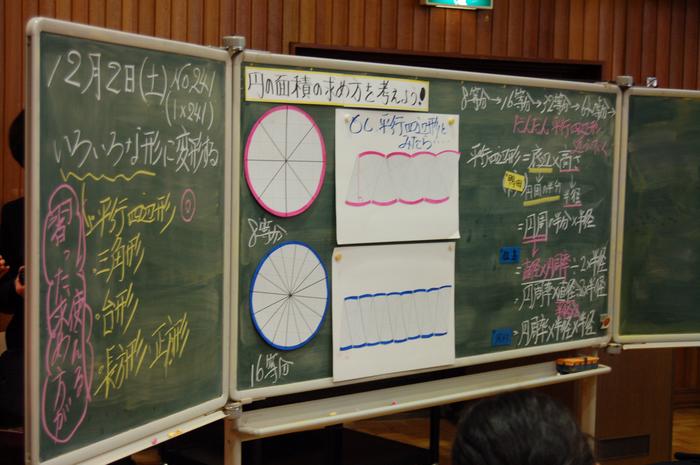 12月2日(土) No.241
(1×241)
いろいろな形に変形する
平行四辺形
・三角形
・台形
・長方形、正方形
習った求め方が
使える
円の面積の求め方を考えよう!
8等分
16等分
もし平行四辺形と
みたら…
8等分→16等分→32等分→64等分
だんだん平行四辺形
平行四辺形=底辺×高さ
円周の半分 半径
=円周の半分×半径
=直径×円周率÷2×半径
=円周率×直径÷2×半径
=円周率×半径×半径